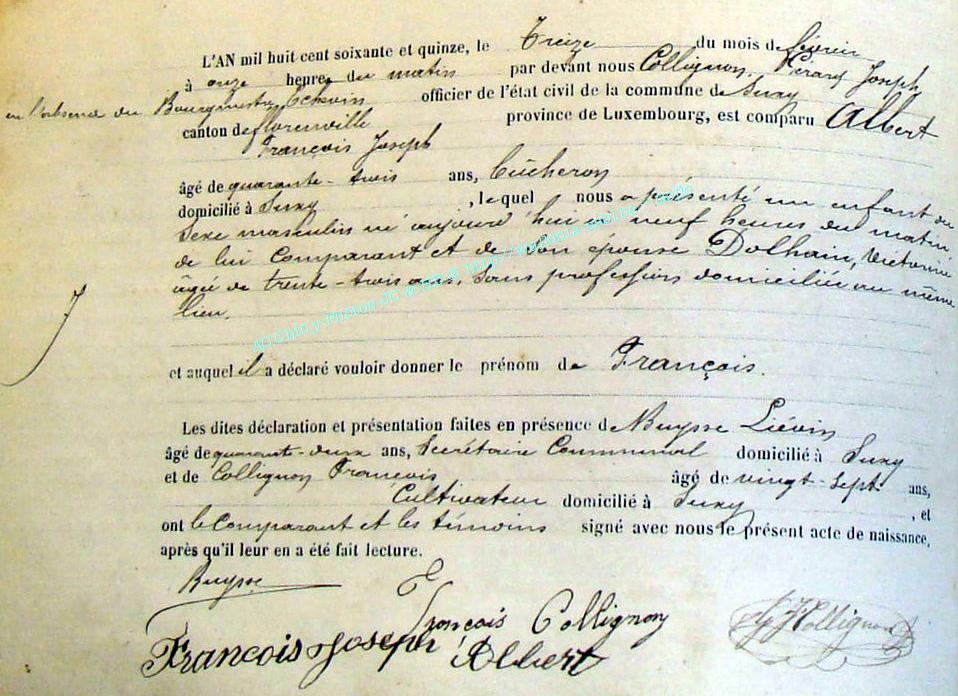 L'AN mil huit cent soixante et quinze, le Treize du mois de Février
à onze heures du matin par devant nous Collignon, Pérary Joseph
en l'absence du Bourgmestre, Echevin officier de l'état civil de la commune de Suxy
canton de florenville province de Luxembourg, est comparu Albert
François Joseph
âgé de quarante-trois ans, bûcheron
domicilié à Suxy, lequel nous a présenté un enfant du
Sexe masculin né aujourd'hui à neuf heures du matin
de lui comparant et de son épouse Dolhain, Victorine
âgée de trente-trois ans, Sans profession domiciliée au même
lieu.
et auquel il a déclaré vouloir donner le prénom de François.
Les dites déclaration et présentation faites en présence de Buysse Liévin
âgé de quarante-deux ans, Secrétaire Communal domicilié à Suxy
et de Collignon François âgé de vingt-sept ans,
Cultivateur domicilié à Suxy, et
ont le Comparant et les témoins signé avec nous le présent acte de naissance,
après qu'il leur en a été fait lecture.
Buysse
François Collignon
François Joseph Albert
Collignon